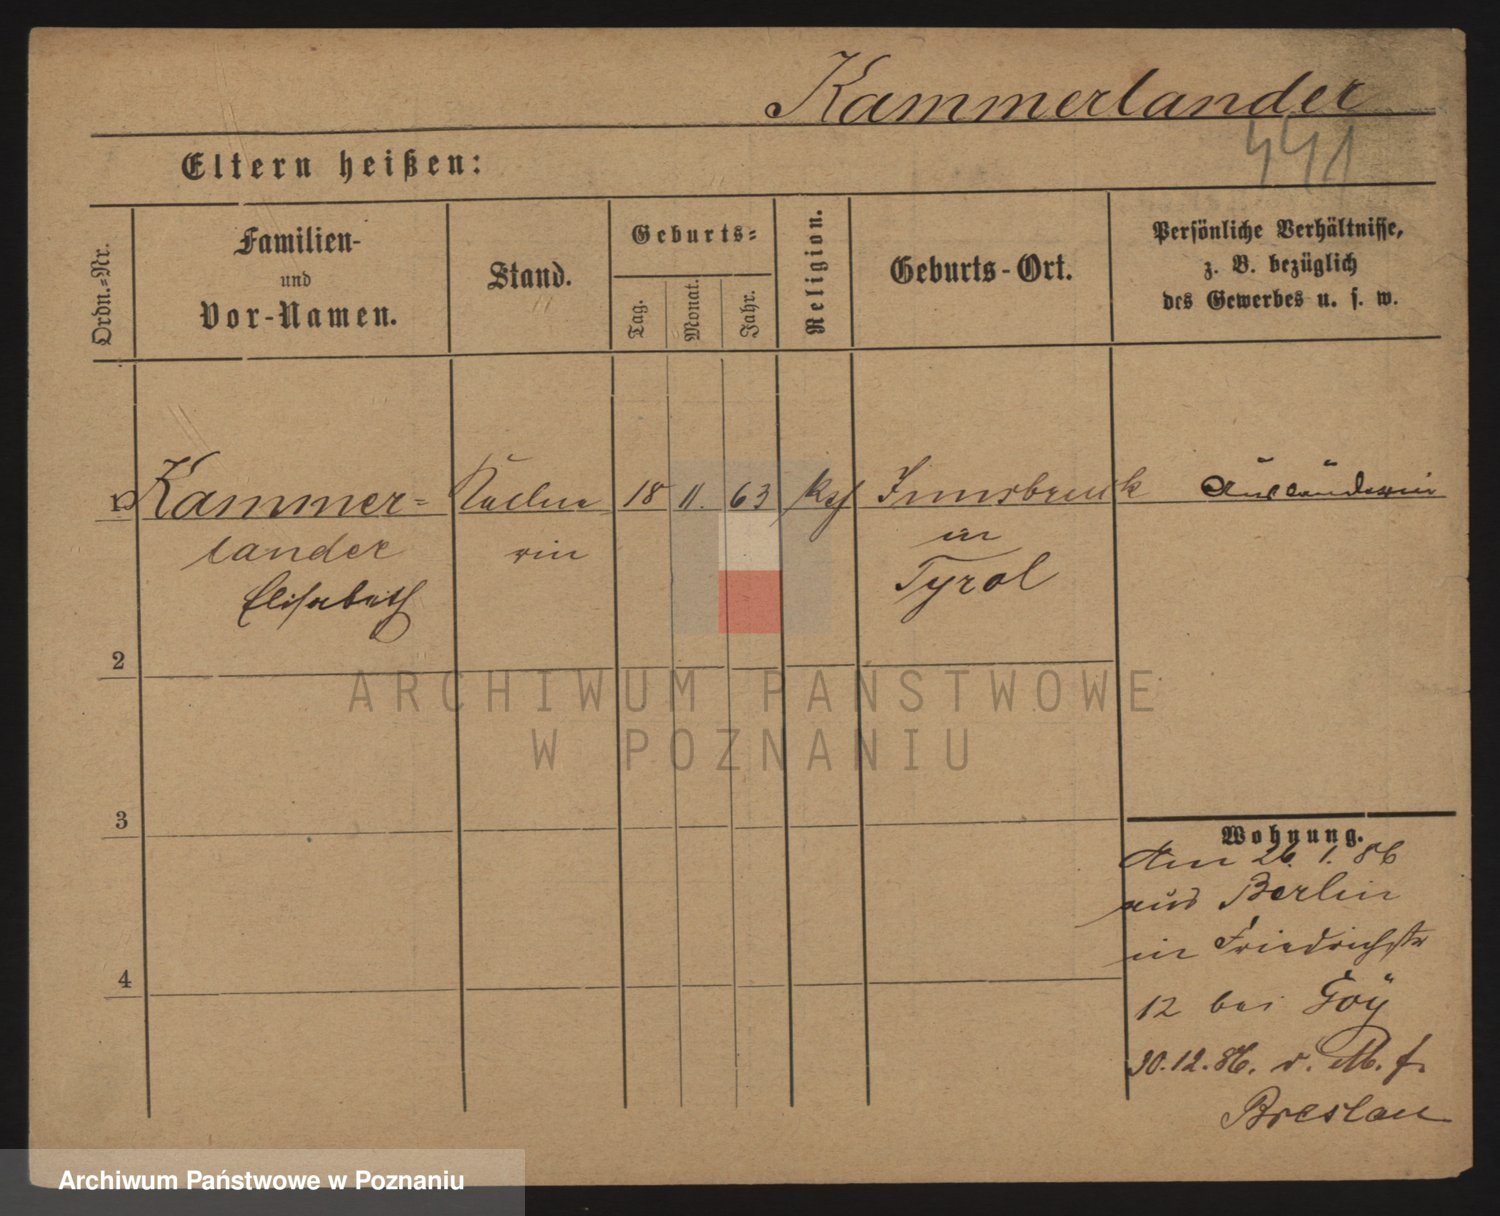 Kammerlander
441
Eltern heißen:
Ordn.-Nr.
Familien-
und
Vor-Namen.
Stand.
Geburts-
Tag.
Monat.
Jahr.
Religion.
Geburts-Ort.
Persönliche Verhältnisse,
z. B. bezüglich
des Gewerbes u. s. w.
1 Kammer= 18 11. 63 kath Innsbruck Ausländerin
lander rin in
Elisabeth Tyrol
2
3
4
Wohnung.
Am 26. 1. 86
aus Berlin
in Friedrichstr
12 bei
30.12.86. v. M. f.
Breslau
ARCHIWUM PAŃSTWOWE
W POZNANIU
Archiwum Państwowe w Poznaniu